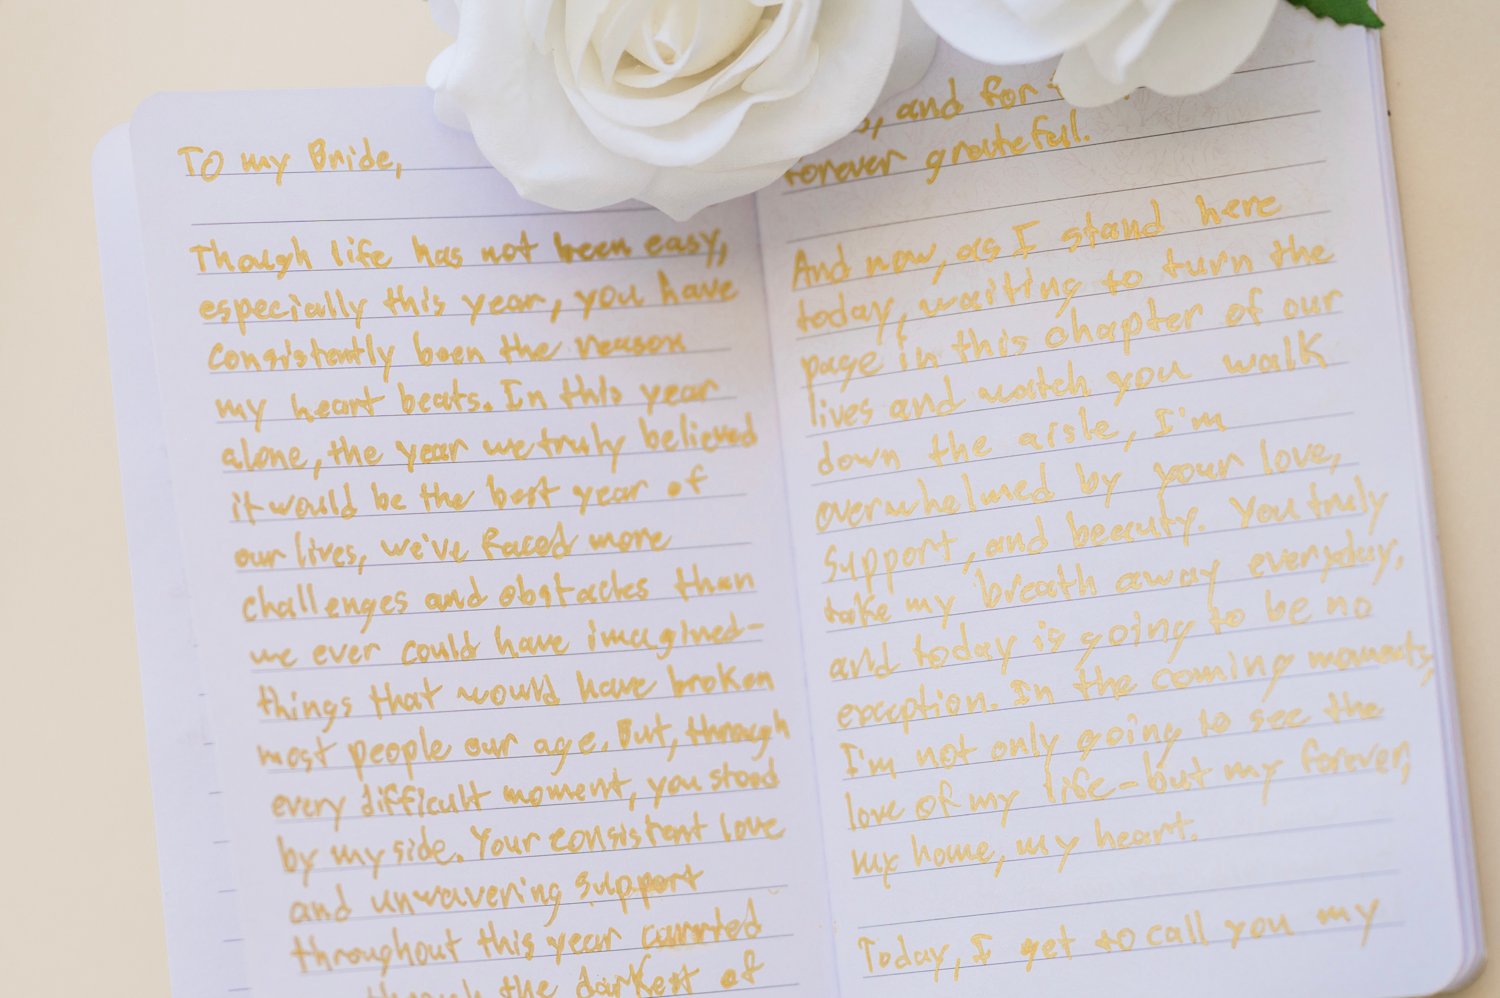 To my Bride,
Though life has not been easy,
especially this year, you have
consistently been the reason
my heart beats. In this year
alone, the year we truly believed
it would be the best year of
our lives, we've faced more
challenges and obstacles than
we ever could have imagined-
things that would have broken
most people our age. But, through
every difficult moment, you stood
by my side. Your consistent love
and unwavering support
throughout this year carried
through the darkest of
, and for
forever grateful.
And now, as I stand here
today, waiting to turn the
page in this chapter of our
lives and watch you walk
down the aisle, I'm
overwhelmed by your love,
support, and beauty. You truly
take my breath away everyday,
and today is going to be no
exception. In the coming moments,
I'm not only going to see the
love of my life-but my forever,
my home, my heart.
Today, I get to call you my